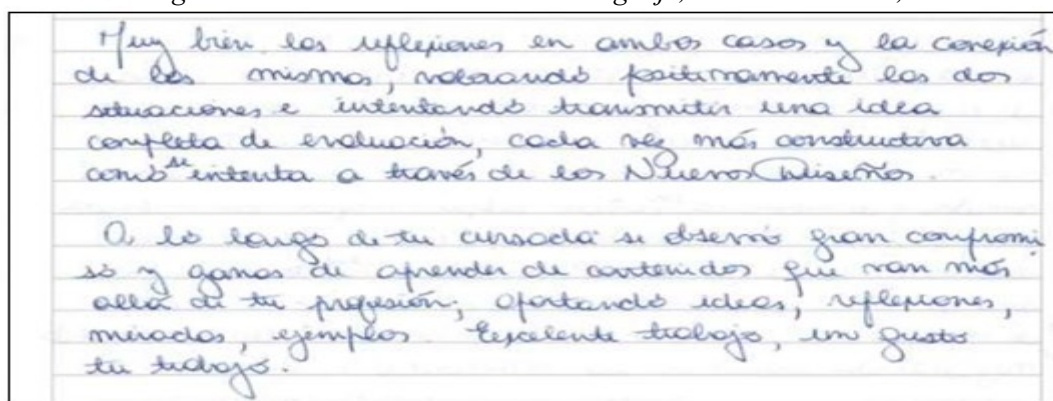 Muy bien las reflexiones en ambos casos y la conexión
de las mismas, valorando positivamente las dos
situaciones e intentando transmitir una idea
completa de evaluación, cada vez más constructiva
como se intenta a través de los Nuevos Diseños.
A lo largo de tu cursada se observó gran compromi
so y ganas de aprender de contenidos que van más
allá de tu profesión, aportando ideas, reflexiones,
miradas, ejemplos. Excelente trabajo, un gusto
tu trabajo.